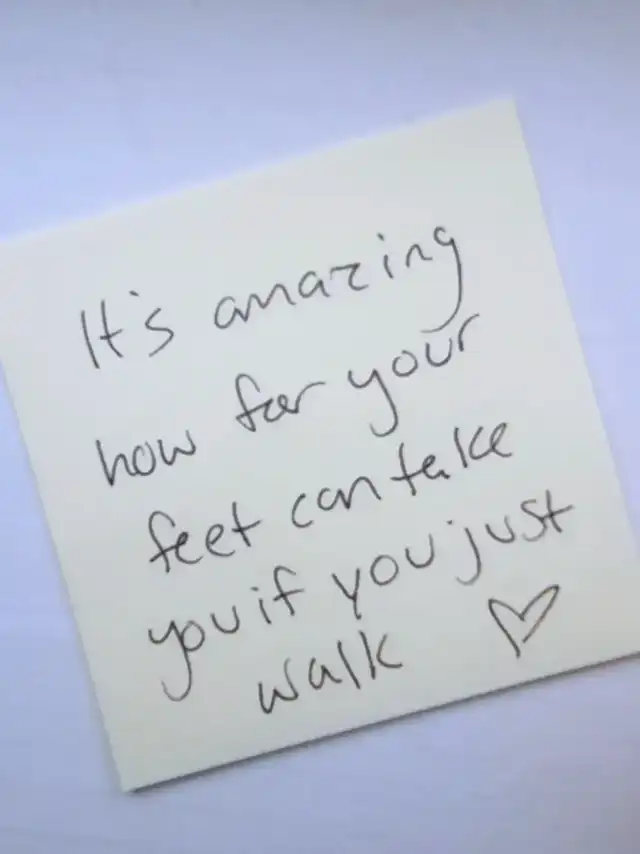 It's amazing
how far your
feet can take
you if you just
walk ♡